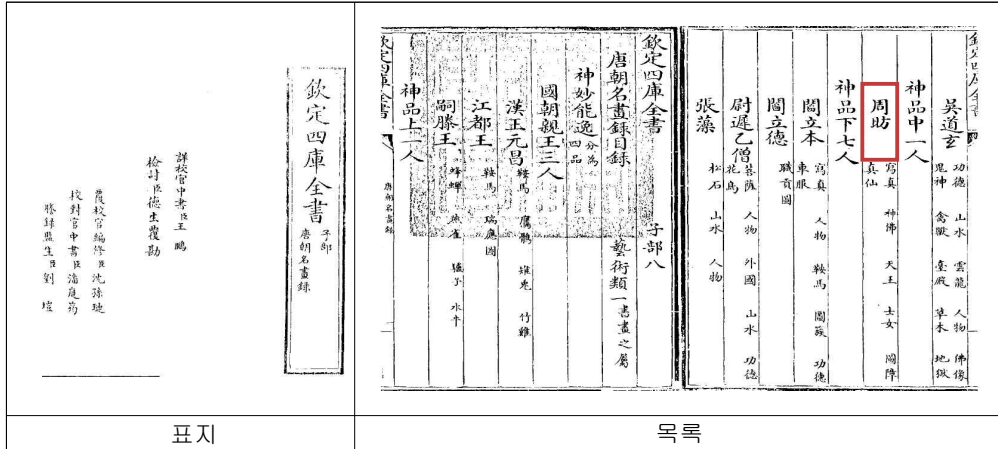 欽定四庫全書
子部
唐朝名畫錄
詳校官中書臣王鵬
檢討臣德生覆勘
覆校官編修臣沈孫璉
校對官中書臣潘庭筠
謄錄監生臣劉瑄
표지
欽定四庫全書 子部八
唐朝名畫錄目錄 藝術類一書畫之屬
神妙能逸 分為四品
國朝親王三人
漢王元昌 鞍馬 鷹鶻 雉兔 竹雞
江都王 鞍馬 瑞應圖
嗣滕王 蜂蟬 燕雀 驢子 水牛
神品上一人
欽定四庫全書 唐朝名畫錄
欽定四庫全書
吳道玄 功德 山水 雲龍 人物 佛像 鬼神 禽獸 臺殿 草木 地獄
神品中一人
周昉 寫真 神佛 天王 士女 圖障 真仙
神品下七人
閻立本 寫真 人物 鞍馬 圖簇 功德 車服
閻立德 職貢圖
尉遲乙僧 菩薩 人物 外國 山水 功德 花鳥
張藻 松石 山水 人物
목록